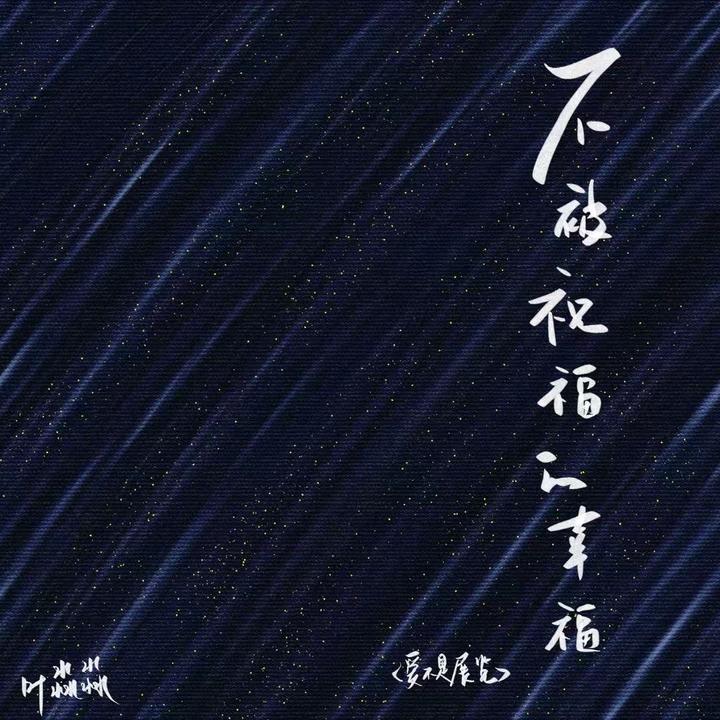 不被祝福的幸福
〈爱不是展览〉
叶淼淼